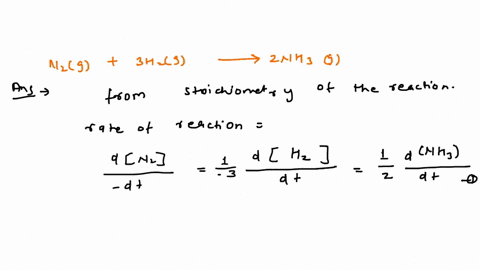 N₂(g) + 3H₂(g) → 2NH₃ (g)
Ans → from stoichiometry of the reaction.
rate of reaction =
d[N₂]/-dt = 1/-3 d[H₂]/dt = 1/2 d(NH₃)/dt -①